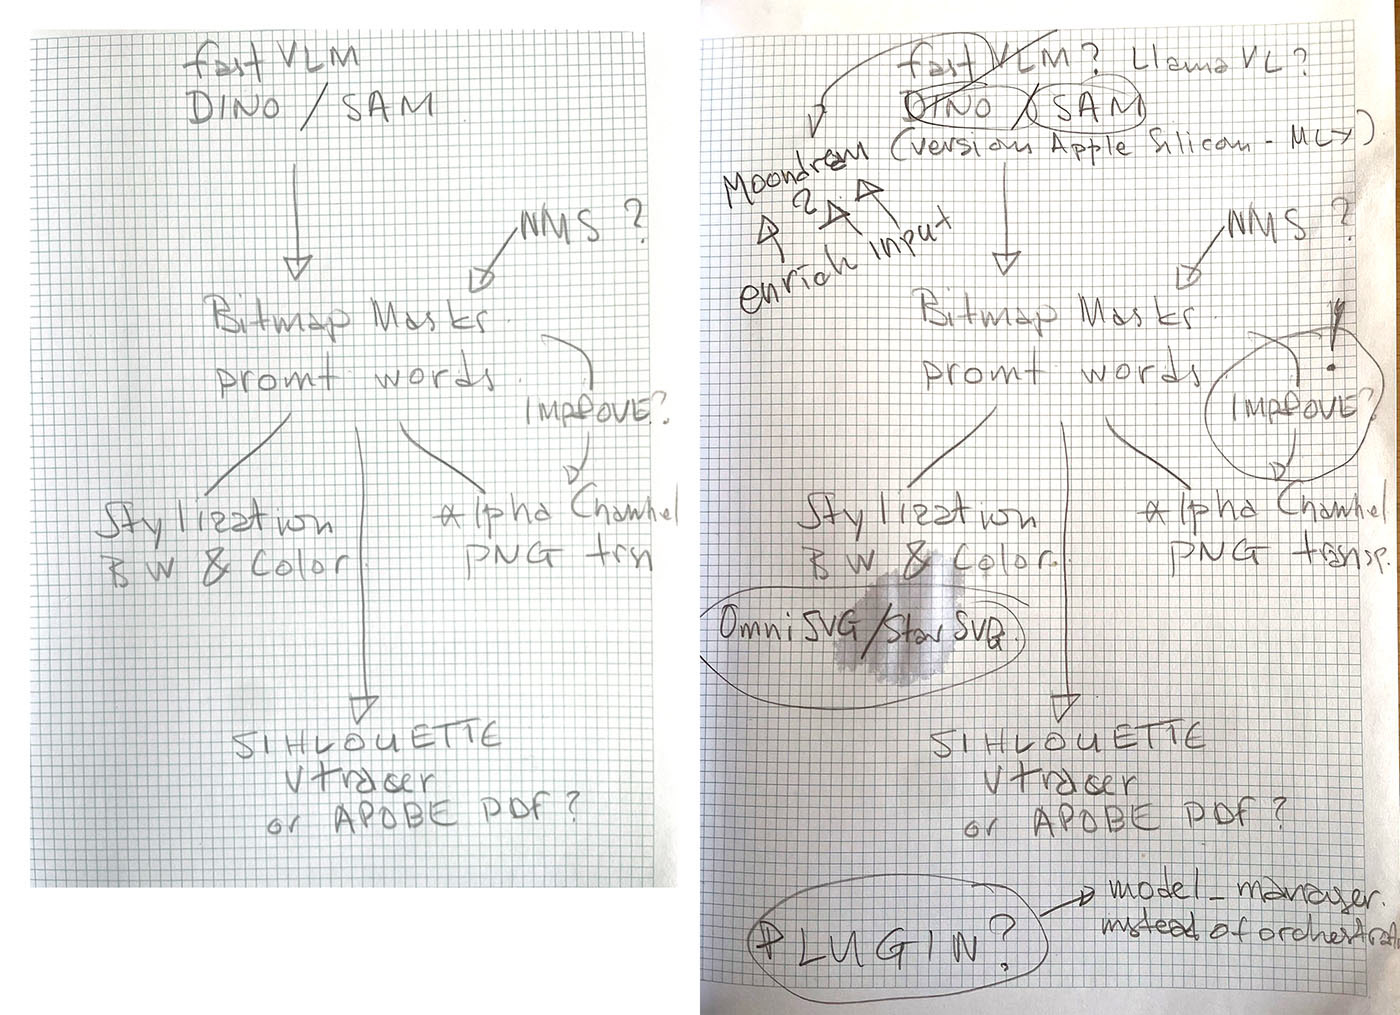 fast VLM
DINO / SAM
NMS ?
Bitmap Masks
promt words
IMPROVE?
Stylization
BW & Color
Alpha Channel
PNG trsn
SIHLOUETTE
Vtracer
or ADOBE PDF ?
fast VLM? Llama VL?
DINO / SAM
(version Apple Silicon - MLX)
Moondream
?
enrich input
NMS ?
Bitmap Masks
promt words
!
IMPROVE?
Stylization
BW & Color
Alpha Channel
PNG transp.
OmniSVG/StarSVG
SIHLOUETTE
Vtracer
or ADOBE PDF ?
PLUGIN?
model_manager.
instead of orchestrat